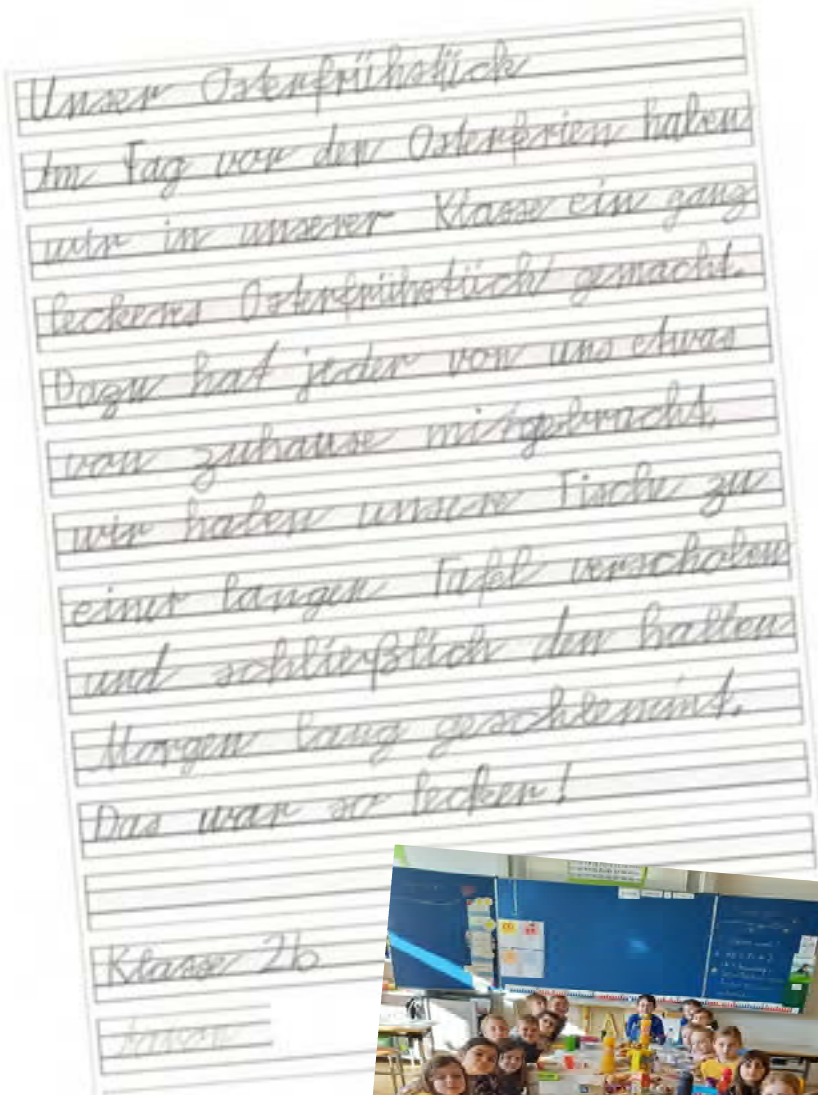 Unser Osterfrühstück
Am Tag vor den Osterferien haben
wir in unserer Klasse ein ganz
leckeres Osterfrühstück gemacht.
Dazu hat jeder von uns etwas
von zuhause mitgebracht.
wir haben unsere Tische zu
einer langen Tafel verschoben
und schließlich den halben
Morgen lang geschlemmt.
Das war so lecker!
Klasse 2b